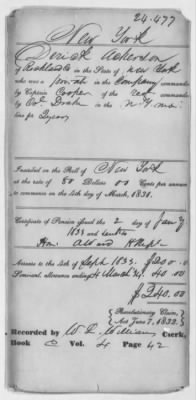 24.477
New York
Derick Ackerson
of Rockland Co in the State of New York
who was a private in the Company commanded
by Captain Cooper of the Regt commanded
by Col. Drake in the N Y mi-
litia for 2 years
Inscribed on the Roll of New York
at the rate of 80 Dollars 00 Cents per annum
to commence on the 4th day of March, 1831.
Certificate of Pension issued the 2 day of Jan'y
1834 and
Hon.
Arrears to the 4th of Sept 1833. $200.0
Semi-anl. allowance ending 4 March 34 40.00
$240.00
Revolutionary Claim,
Act June 7, 1832.
Recorded by W. L. Williams Clerk,
Book Vol. 4 Page 42